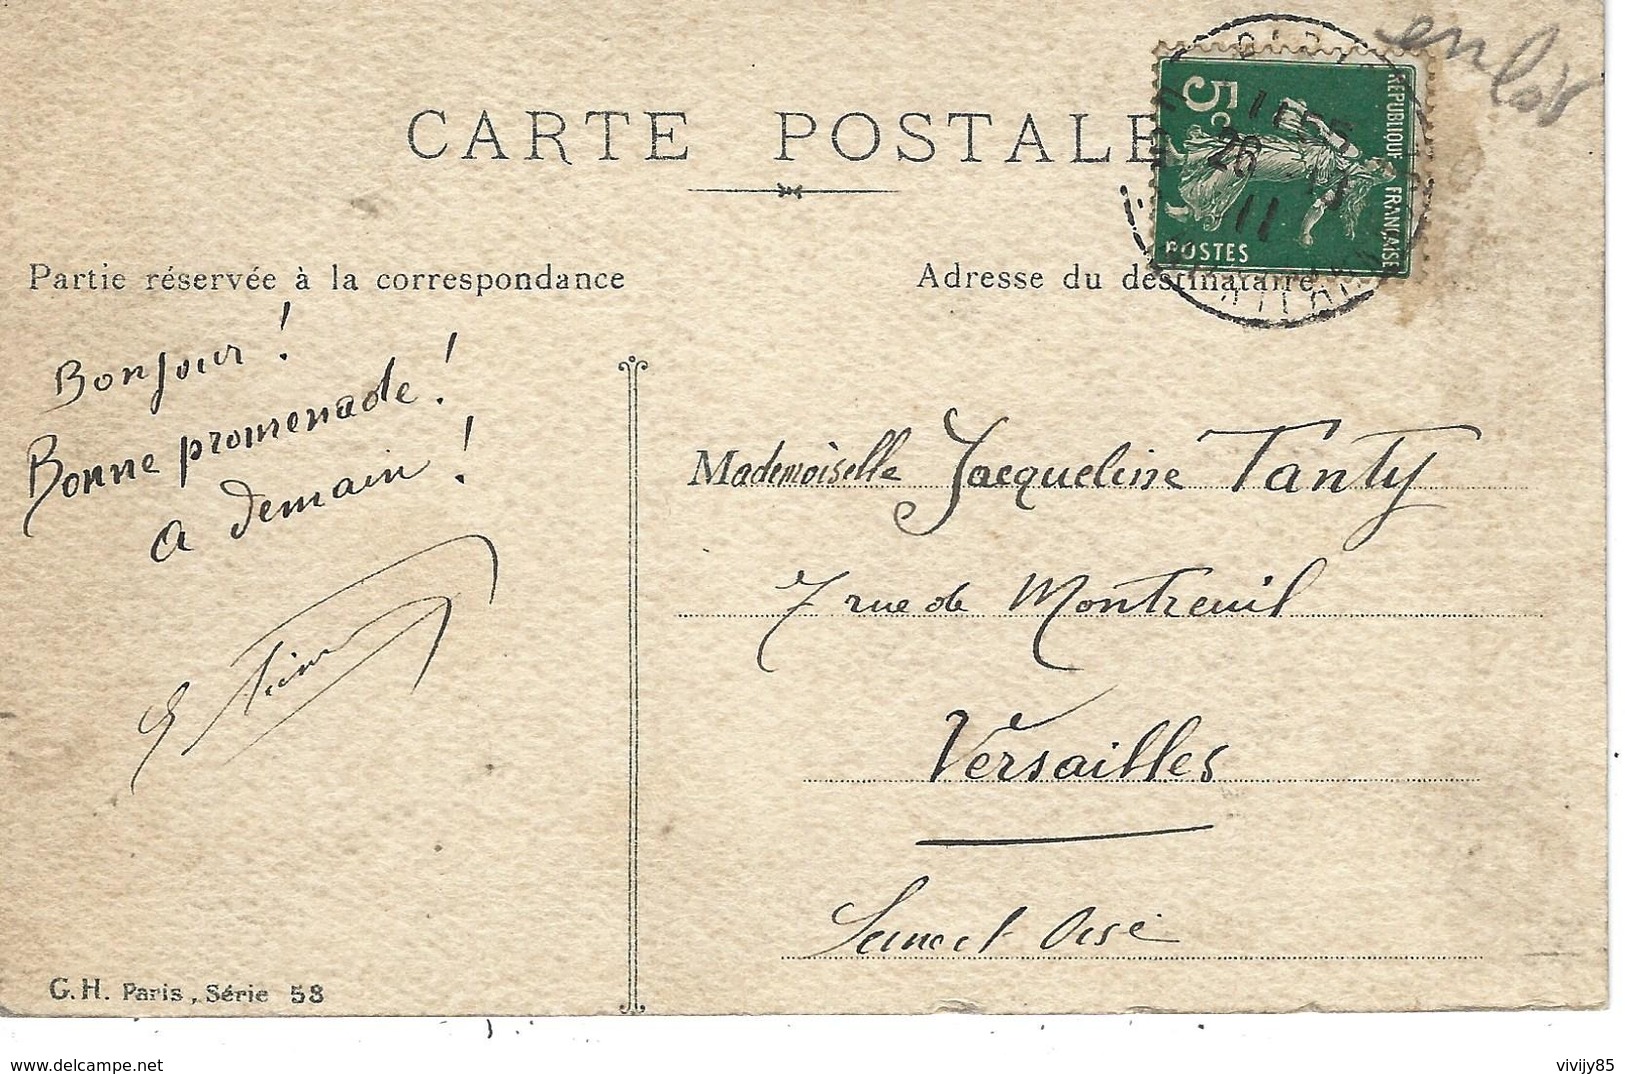 CARTE POSTALE
en lot
5c
REPUBLIQUE FRANÇAISE
POSTES
11 55
26
11
Partie réservée à la correspondance
Adresse du destinataire
Bonjour !
Bonne promenade !
a demain !
Mademoiselle Jacqueline Tanty
7 rue de Montreuil
Versailles
Seine et Oise
G.H. Paris, Série 58
Wrap & Hold / See text
vivijy85